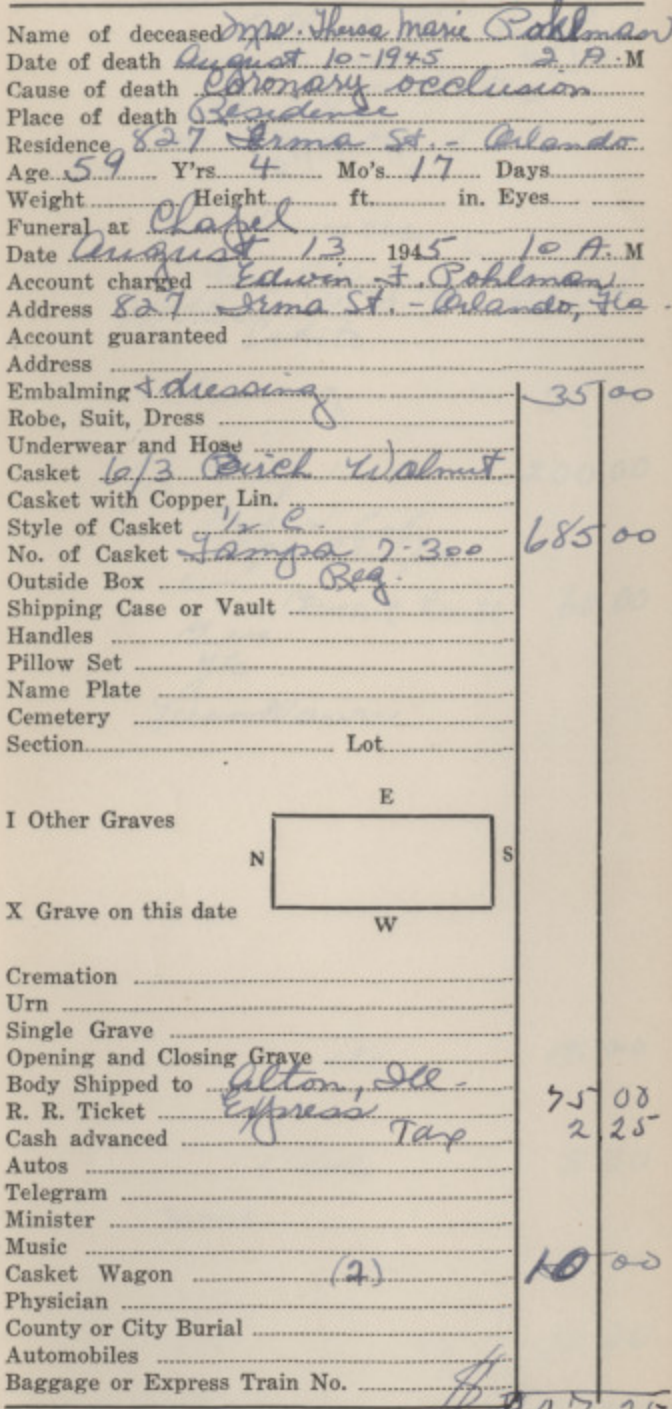 Name of deceased Mrs. Thersa Marie Pohlman
Date of death August 10-1945 2 A. M
Cause of death Coronary occlusion
Place of death Residence
Residence 827 Irma St. - Orlando
Age 59 Y'rs. 4 Mo's. 17 Days
Weight Height ft. in. Eyes
Funeral at Chapel
Date August 13 1945 10 A. M
Account charged Edwin F. Pohlman
Address 827 Irma St. - Orlando, Fla.
Account guaranteed
Address
Embalming & dressing 35 00
Robe, Suit, Dress
Underwear and Hose
Casket 6/3 Birch Walnut
Casket with Copper Lin.
Style of Casket 1/2 C. 685 00
No. of Casket Tampa 7-300
Outside Box Reg.
Shipping Case or Vault
Handles
Pillow Set
Name Plate
Cemetery
Section Lot
E
I Other Graves
N S
X Grave on this date
W
Cremation
Urn
Single Grave
Opening and Closing Grave
Body Shipped to Alton, Ill -
R. R. Ticket Express 75 00
Cash advanced Tax 2 25
Autos
Telegram
Minister
Music
Casket Wagon (2) 10 00
Physician
County or City Burial
Automobiles
Baggage or Express Train No. $